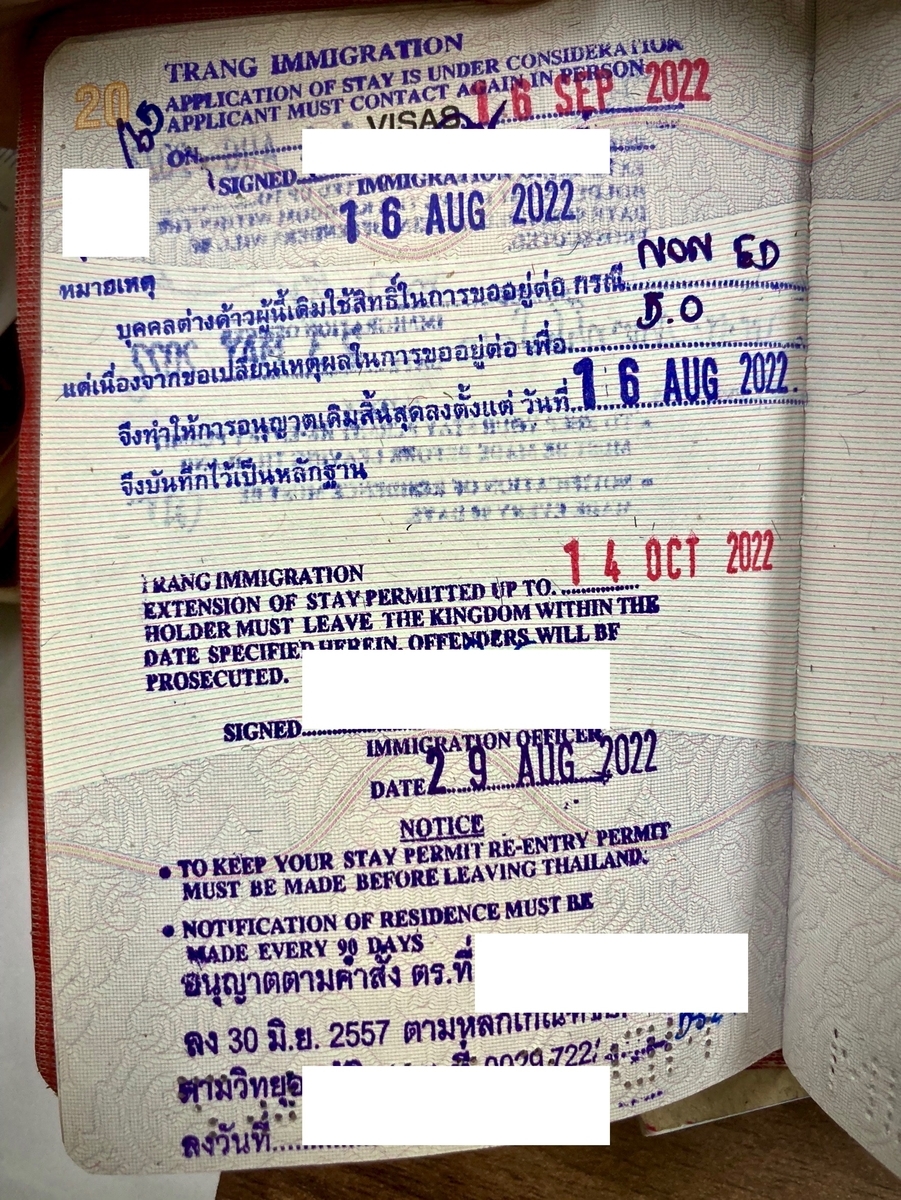 20
TRANG IMMIGRATION
APPLICATION OF STAY IS UNDER CONSIDERATION
APPLICANT MUST CONTACT AGAIN IN PERSON
VISAS
ON 16 SEP 2022
SIGNED
IMMIGRATION
16 AUG 2022
หมายเหตุ
บุคคลต่างด้าวผู้นี้เดิมใช้สิทธิ์ในการขออยู่ต่อ กรณี NON ED
แต่เนื่องจากขอเปลี่ยนเหตุผลในการขออยู่ต่อ เพื่อ
จึงทำให้การอนุญาตเดิมสิ้นสุดลงตั้งแต่ วันที่ 16 AUG 2022
จึงบันทึกไว้เป็นหลักฐาน
TRANG IMMIGRATION
EXTENSION OF STAY PERMITTED UP TO. 14 OCT 2022
HOLDER MUST LEAVE THE KINGDOM WITHIN THE
DATE SPECIFIED HEREIN. OFFENDERS WILL BE
PROSECUTED.
SIGNED
IMMIGRATION OFFICER
DATE 29 AUG 2022
NOTICE
• TO KEEP YOUR STAY PERMIT RE-ENTRY PERMIT
MUST BE MADE BEFORE LEAVING THAILAND.
• NOTIFICATION OF RESIDENCE MUST BE
MADE EVERY 90 DAYS
อนุญาตตามคำสั่ง ตร.ที่
ลง 30 มิ.ย. 2557 ตามหลักเกณฑ์
ตามวิทยุ
ลงวันที่